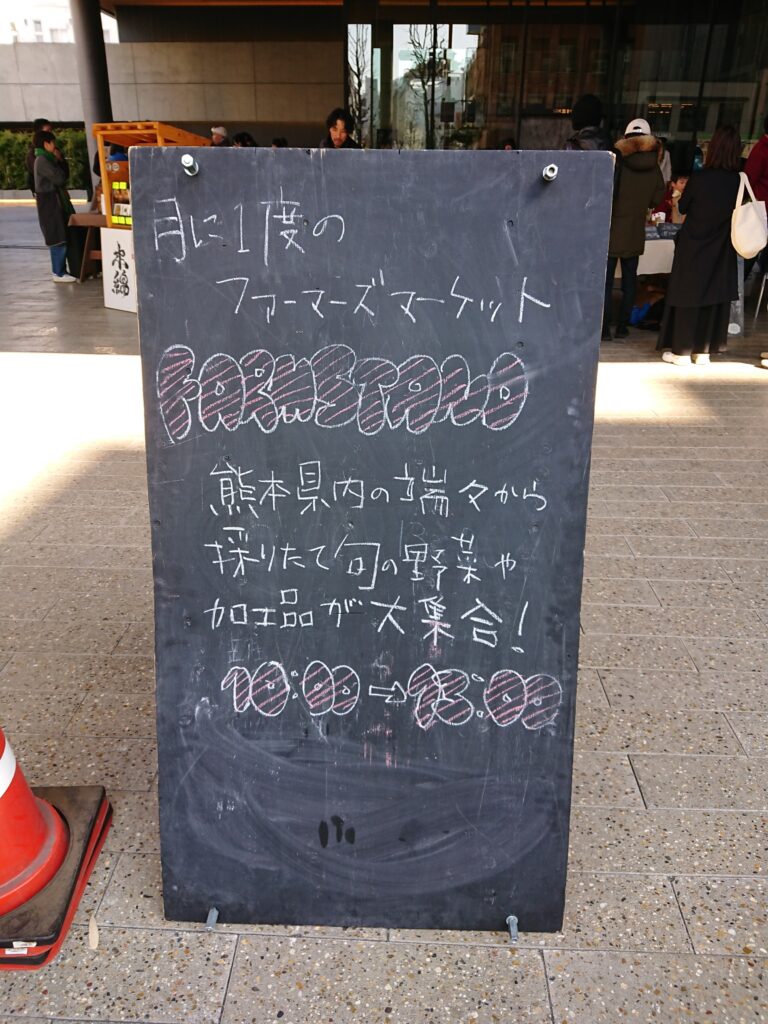 月に1度の
ファーマーズマーケット
FARMSTAND
熊本県内の端々から
採りたて旬の野菜や
加工品が大集合！
10:00→15:00
木綿